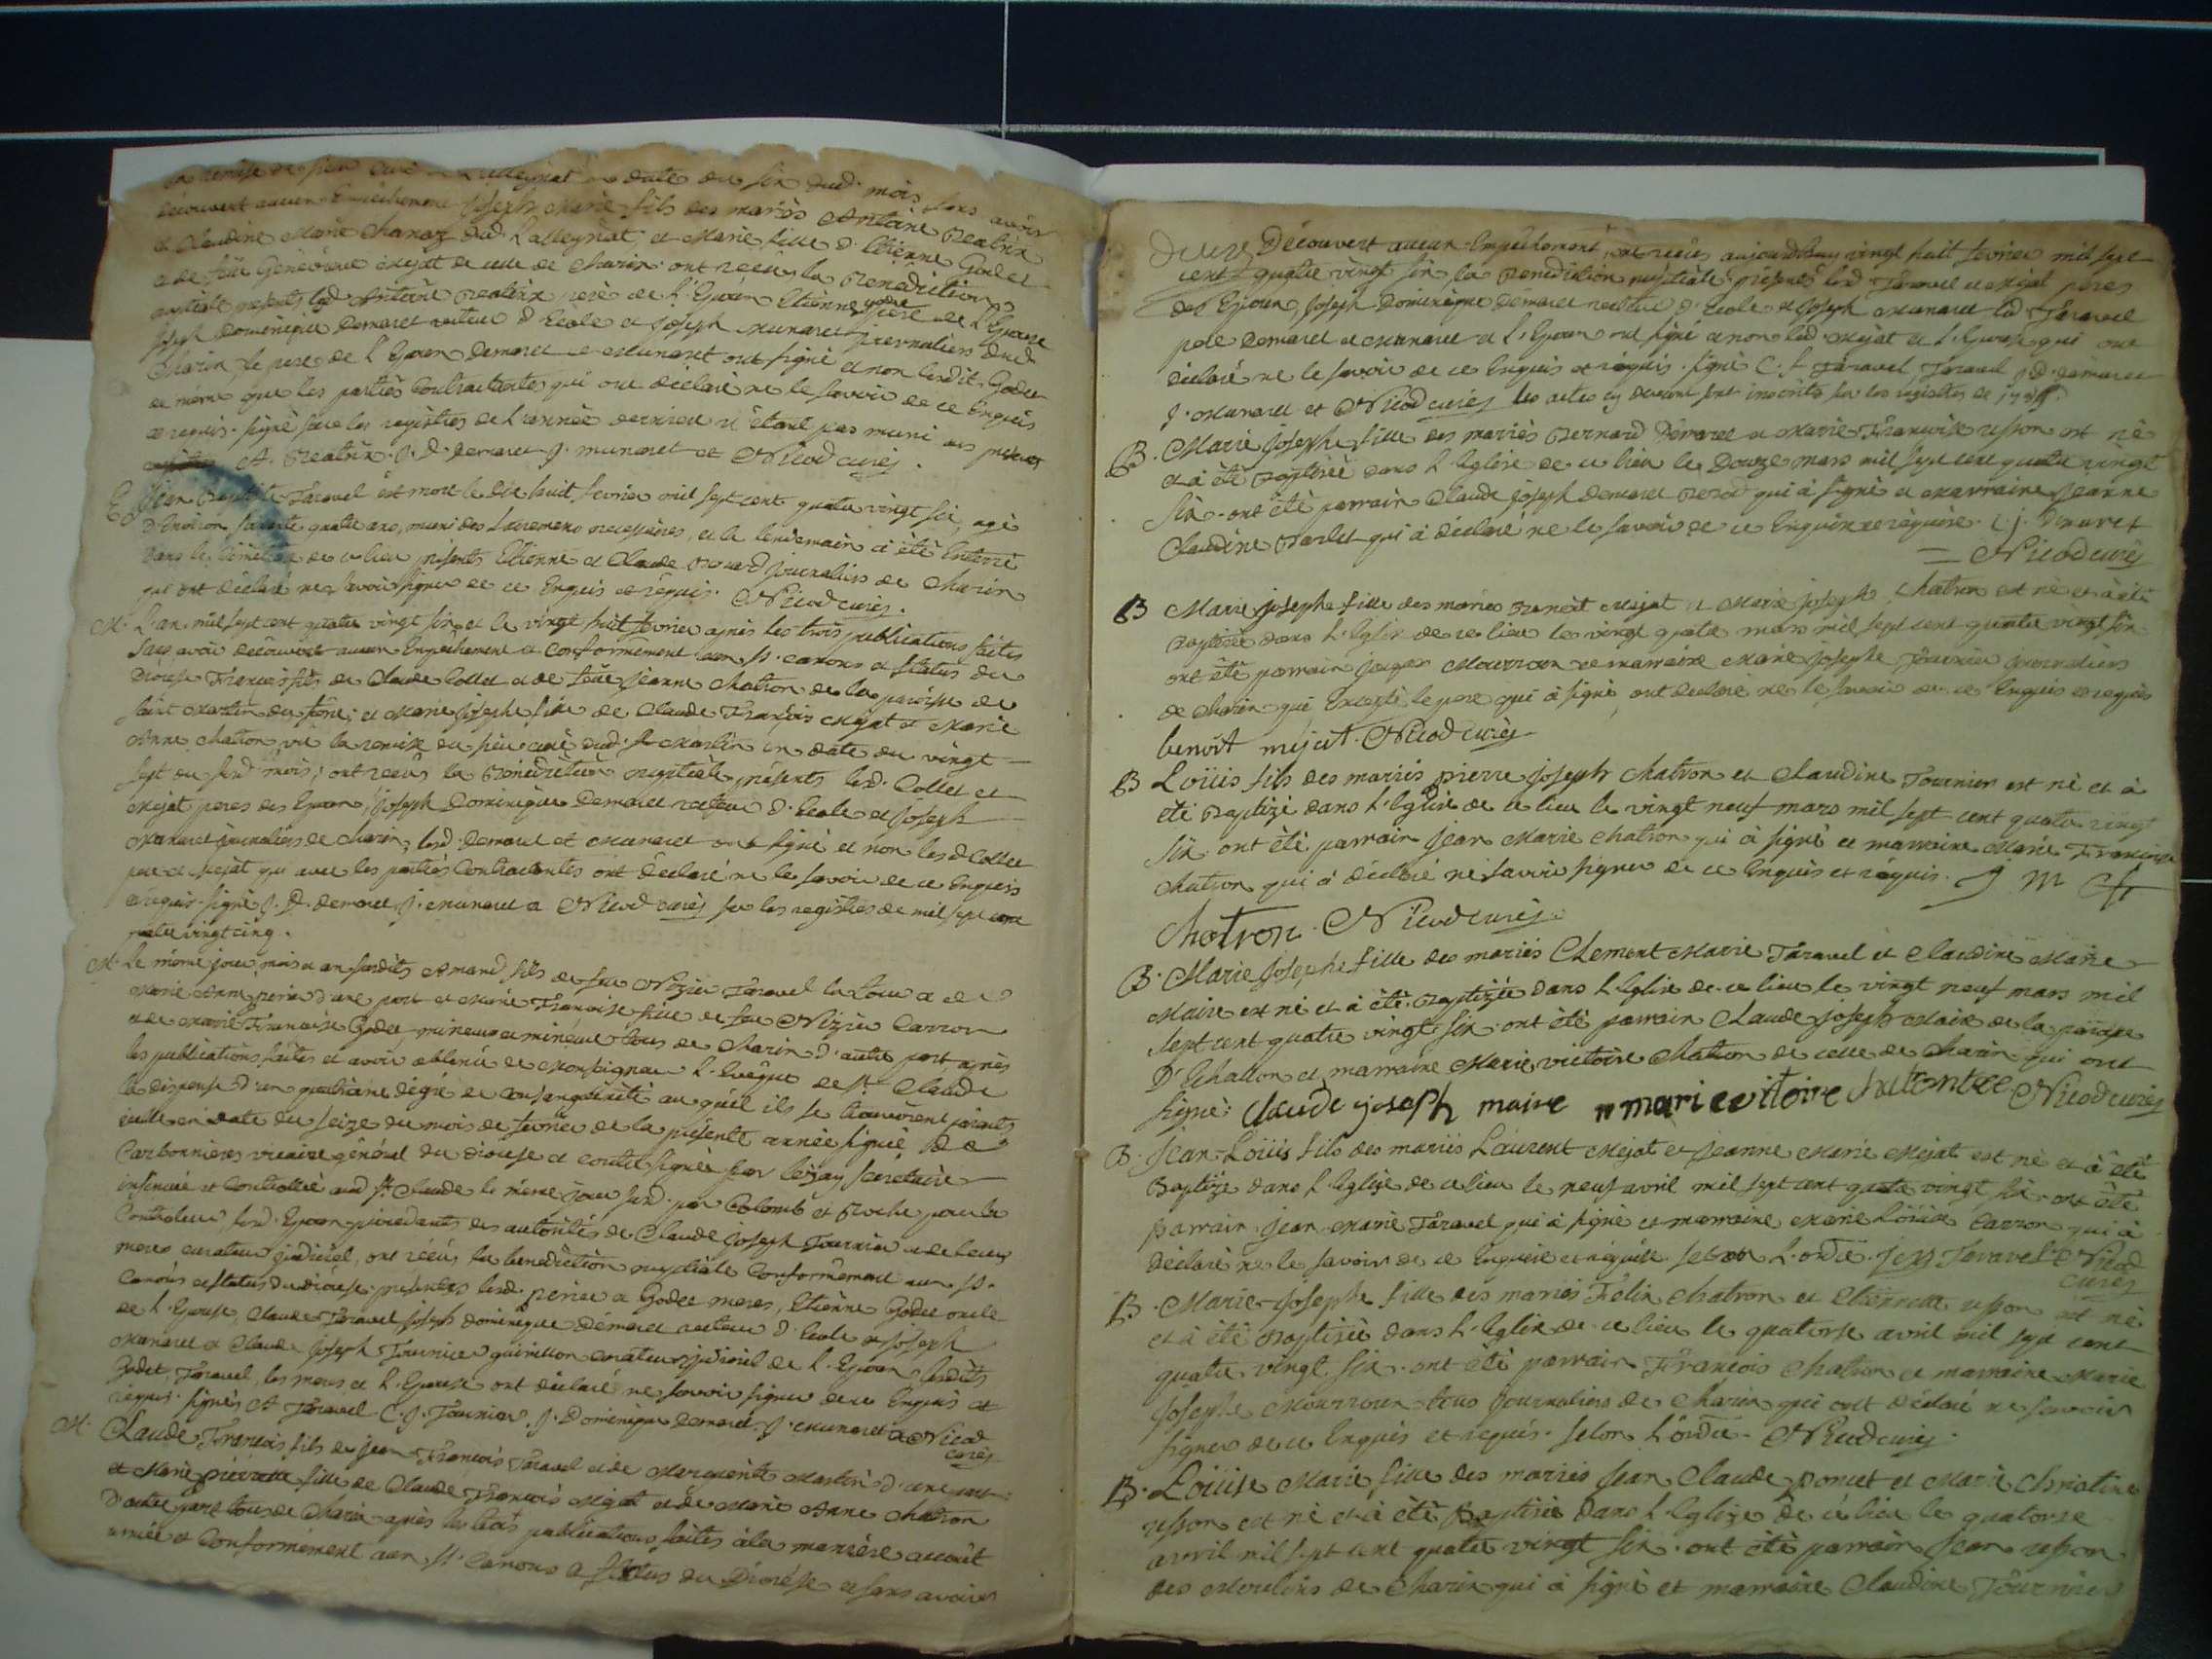 la remise du sieur curé de Lalleyriat en date du six dud. mois, sans avoir
découvert aucun Empêchement Joseph Marie fils des mariés Antoine Beatrix
et Claudine Marie Chanaz dud. Lalleyriat, et Marie fille d'Etienne Godet
et de feüe Genevieve Mejat de celle de Charix ont reçu la Bénédiction
nuptiale présents led. Antoine Beatrix père de l'Epoux Etienne Godet père de l'Epouse
Joseph Dominique Demaret recteur d'Ecole et Joseph Munaret journaliers dud.
Charix, le père de l'Epoux Demaret et Munaret ont signé et non lesdits Godet
de même que les parties Contractantes qui ont déclaré ne le savoir de ce Enquis
et requis. signé sur les registres de l'année derniere n'étant pas muni des présents
A. Beatrix. J. D. Demaret J. munaret et Nicod curéj.
E Jean Baptiste Taravel est mort le dix huit fevrier mil sept cent quatre vingt six, agé
D'Environ soixante quatre ans, muni des Sacremens necessaires, et le lendemain à été Enterré
Dans le Cimetiere de ce lieu présents Etienne et Claude journaliers de Charix
qui ont déclaré ne savoir signer de ce Enquis et requis. Nicod curéj.
M. L'an mil sept cent quatre vingt six et le vingt huit fevrier après les trois publications faites
sans avoir découvert aucun Empêchement et Conformément aux st. canons et statuts du
Diocèse François fils de Claude Collet et de feüe Jeanne Chatron de la paroisse de
Saint Martin du frêne, et Marie Josephe fille de Claude François Mejat et Marie
Anne Chatron, vu la remise du sieur curé dud. St Martin en date du vingt
sept du susd. mois, ont reçus la Bénédiction nuptiale présents lesd. Collet et
Mejat peres des Epoux, Joseph Dominique Demaret recteur d'Ecole et Joseph
Munaret journaliers de Charix, lesd. Demaret et Munaret ont signé et non lesd. Collet
pere et Mejat qui avec les parties Contractantes ont déclaré ne le savoir de ce Enquis
et requis. signé J. D. demaret J. munaret et Nicod curéj sur les registres de mil sept cent
quatre vingt cinq.
M. Le même jour mois et an susdits Amand fils de feu Nizier Taravel la Loua et de
Marie Anne perier d'une part et Marie Françoise fille de feu Nizier Carron
et de Marie Françoise Godet mineur et mineure tous de Charix d'autre part, après
les publications faites et avoir obtenu de Monseigneur L'Evêque de St Claude
la dispense d'un quatrieme dégré de consanguinité au quel ils se trouvoient parents
icelle en date du seize du mois de fevrier de la présente année signée de
Carbonnieres vicaire général du diocèse et contresignée par Lejay secretaire
insinuée et Controllée aud. St. Claude le même jour susd. par Colomb et Roche pour le
Controleur susd. Epoux procedants des autorités de Claude Joseph Tournier et de leurs
meres curateur judiciel, ont reçus la benediction nuptiale Conformément aux st.
Canons et statuts du diocèse présentes lesd. perier et Godet meres, Etienne Godet oncle
de l'Epouse, Claude Taravel Joseph dominique Demaret recteur d'Ecole et Joseph
Munaret et Claude Joseph Tournier curateur judiciel de l'Epoux lesdits
Godet, Taravel, les meres et l'Epouse ont déclaré ne savoir signer de ce Enquis et
requis. signés A Taravel C. J. Tournier. J. Dominique demaret. J. munaret et Nicod
curéj
M. Claude François fils de Jean François Taravel et de Marguerite Martin d'une part
et Marie pierrette fille de Claude François Mejat et de Marie Anne Chatron
d'autre part tous de Charix après les trois publications faites à la maniere accoût
umée et Conformément aux st. Canons et statuts du Diocèse et sans avoir
Découvert aucun Empêchement, ont reçus aujourd'huy vingt huit fevrier mil sept
cent quatre vingt six la Bénédiction nuptiale présents lesd. Taravel et Mejat péres
des Epoux, Joseph Dominique Demaret recteur d'Ecole et Joseph Munaret led Taravel
pere Demaret et Munaret et l'Epoux ont signé et non led. Mejat et l'Epouse qui ont
déclaré ne le savoir de ce Enquis et requis. signé C. f Taravel Taravel J D. demaret
J. Munaret et Nicod curéj les actes cy devant sont inscrits sur les registres de 1785.
B. Marie Josephe fille des mariés Bernard Démaret et Marie Françoise usson est né
et à été Baptisée dans l'Eglise de ce lieu le Douze mars mil sept cent quatre vingt
six. ont été parrain Claude joseph demaret qui à signé et marraine Jeanne
Claudine qui à déclaré ne le savoir de ce Enquise et requise. C. j. Demaret
= Nicod curéj
B Marie josephe fille des mariés Benoit Mejat et Marie Joseph Chatron est né et à été
Baptisée dans l'Eglise de ce lieu les vingt quatre mars mil sept cent quatre vingt six
ont été parrain jacques Mourroux et marraine Marie Josephe Tournier journaliers
de Charix qui Excepté le pere qui à signé, ont déclaré ne le savoir de ce Enquis et requis
benoit mejat. Nicod curéj
B Loüis fils des mariés pierre Joseph Chatron et Claudine Tournier est né et à
été Baptizé dans l'Eglise de ce lieu le vingt neuf mars mil sept cent quatre vingt
six. ont été parrain Jean Marie Chatron qui à signé et marraine Marie Françoise
Chatron qui à déclaré ne savoir signer de ce Enquis et requis. J m
Chatron. Nicod curéj.
B. Marie Josephe fille des mariés Clement Marie Taravel et Claudine Marie
Maire est né et à été Baptizée dans l'Eglise de ce lieu le vingt neuf mars mil
sept cent quatre vingt six. ont été parrain Claude joseph Maire de la paroisse
D'Echallon et marraine Marie victoire Chatron de celle de Charix qui ont
signé: claude joseph maire marie vitoire Nicod curéj
B. Jean-Loüis fils des mariés Laurent Mejat et Jeanne Marie Mejat est né et à été
Baptizé dans l'Eglise de ce lieu le neuf avril mil sept cent quatre vingt six. ont été
parrain Jean Marie Taravel qui à signé et marraine Marie Loüise Carron qui à
déclaré ne le savoir de ce Enquise et requise selon l'ordce. Taravel. Nicod
curéj
B. Marie-Josephe fille des mariés Felix Chatron et Etiennette usson est né
et à été Baptisée dans l'Eglise de ce lieu le quatorse avril mil sept cent
quatre vingt six. ont été parrain François Chatron et marraine Marie
Josephe Mourroux tous journaliers de Charix qui ont déclaré ne savoir
signer de ce Enquis et requis. selon l'ordce. Nicod curéj.
B. Loüise Marie fille des mariés Jean Claude poncet et Marie Christine
usson est né et à été Baptisée dans l'Eglize de ce lieu le quatorse
avril mil sept cent quatre vingt six. ont été parrain Jean usson
des Moulins de Charix qui à signé et marraine Claudine Tournier